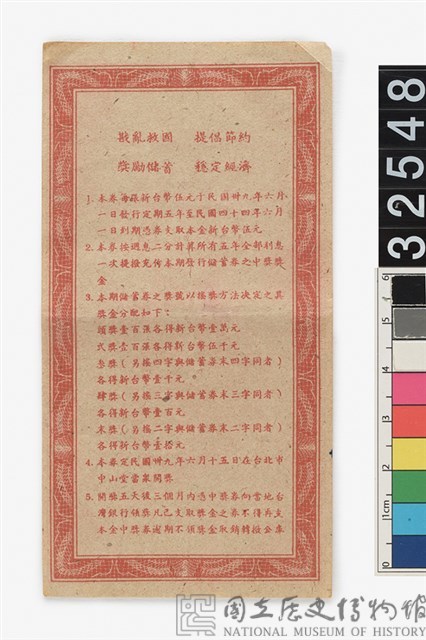 戡亂救國　提倡節約
獎勵儲蓄　穩定經濟
1. 本券每張新台幣伍元于民國卅九年六月
一日發行定期五年至民國四十四年六月
一日到期憑券支取本金新台幣伍元
2. 本券按週息二分計算所有五年全部利息
一次提撥充作本期發行儲蓄券之中獎獎
金
3. 本期儲蓄券之獎號以搖獎方法决定之其
獎金分配如下：
頭獎壹百張各得新台幣壹萬元
弍獎壹百張各得新台幣伍千元
叁獎（另搖四字與儲蓄券末四字同者）
各得新台幣壹千元
肆獎（另搖三字與儲蓄券末三字同者）
各得新台幣壹百元
末獎（另搖二字與儲蓄券末二字同者）
各得新台幣壹拾元
4. 本券定民國卅九年六月十五日在台北市
中山堂當衆開獎
5. 開獎五天後三個月内憑中獎券向當地台
灣銀行領獎凡已支取獎金之券不得再支
本金中獎券逾期不領獎金取銷轉撥公庫
32548
6
1cm
國立歷史博物館
NATIONAL MUSEUM OF HISTORY